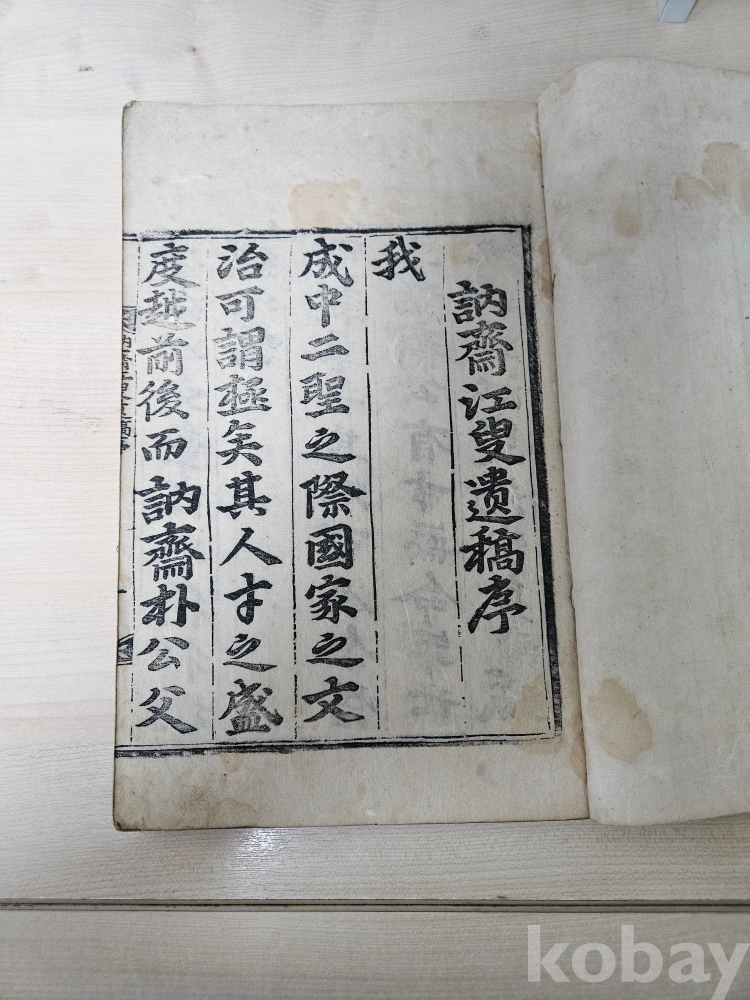 訥齋江叟遺稿序
我
成中二聖之際國家之文
治可謂極矣其人才之盛
度越前後而訥齋朴公父
kobay